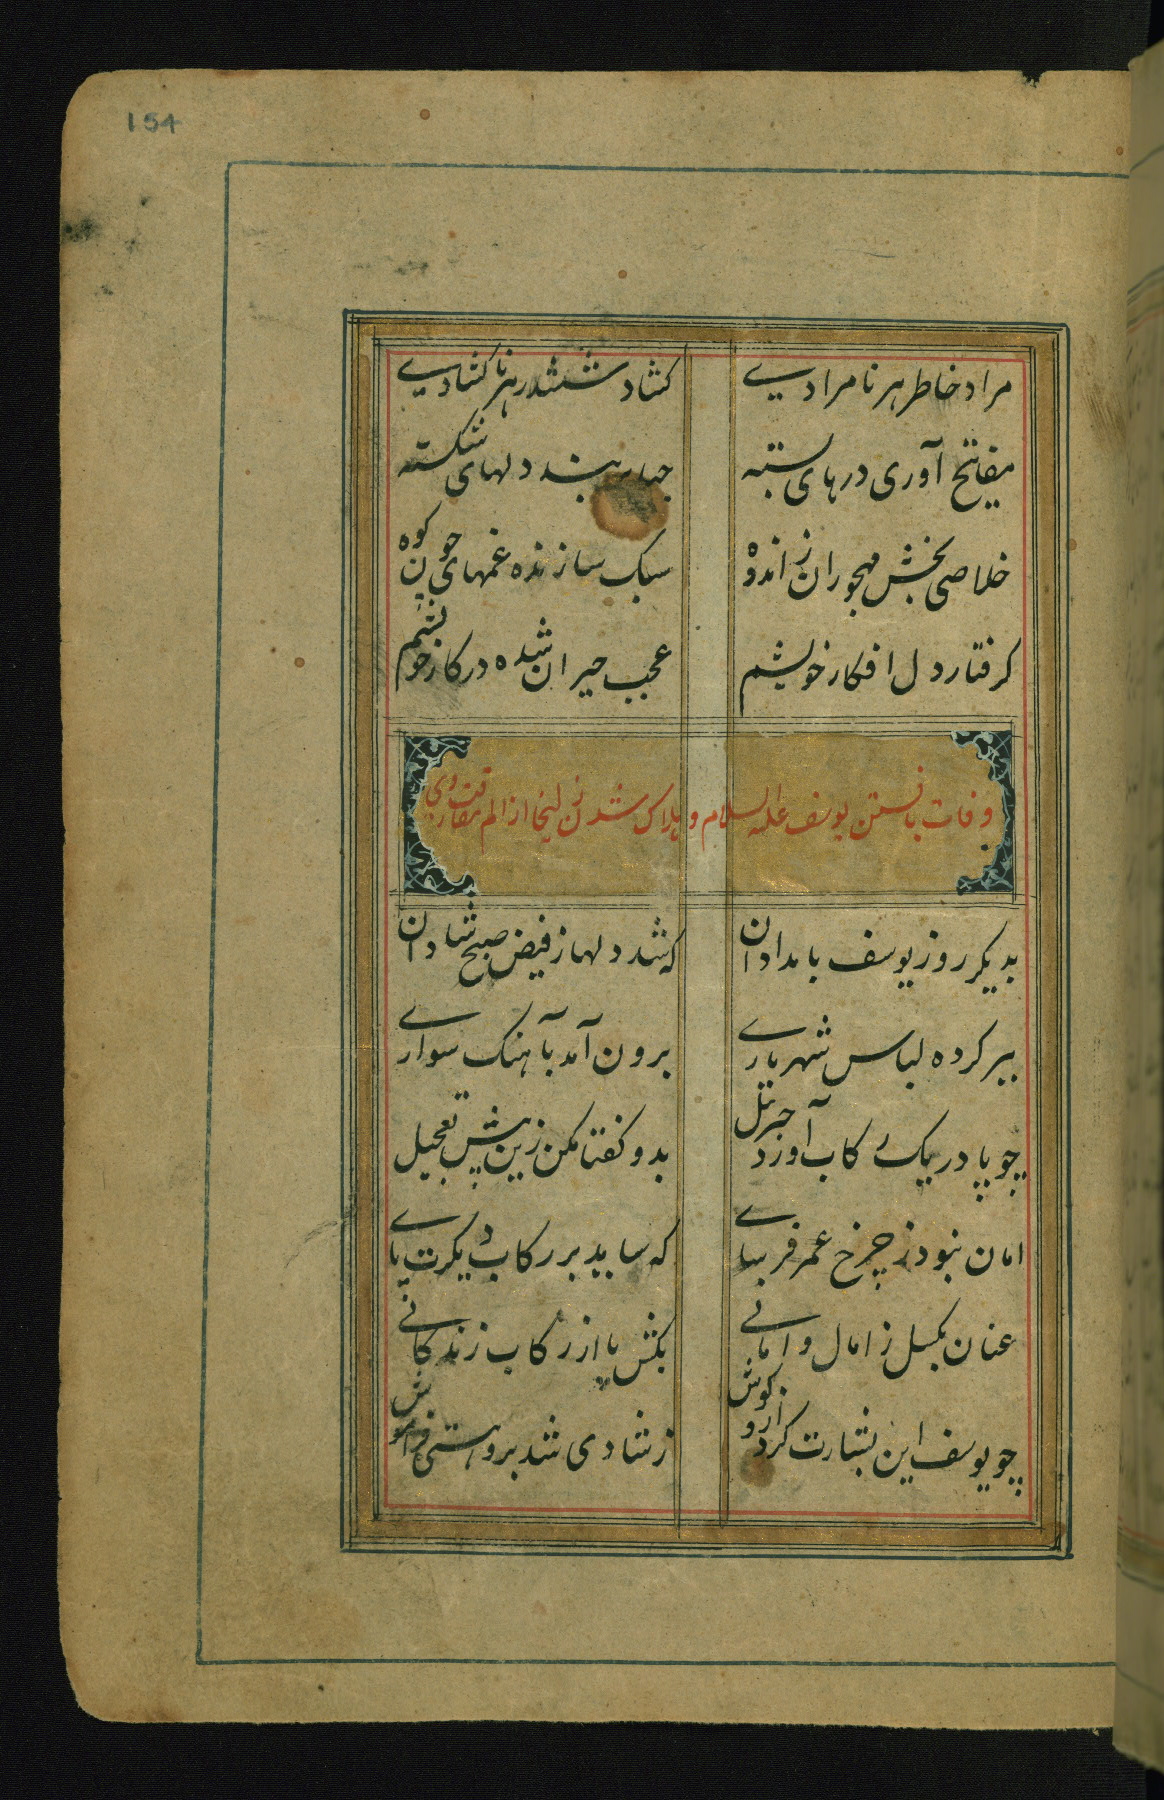 154
مراد خاطر هر نامرادی کشاد ششدر هر ناکشادی
مفاتح آوری درهای بسته جبایر بند دلهای شکسته
خلاصی بخش مهجوران ز اندوه سبک سازنده غمهای چون کوه
کرفتار دل افکار خویشم عجب حیران شده در کار خویشم
وفات یافتن یوسف علیه السلام و هلاک شدن زلیخا از الم مفارقت وی
بدیکر روز یوسف بامدادان که شد دلها ز فیض صبح شادان
ببر کرده لباس شهریاری برون آمد بآهنک سواری
چو پا در یک رکاب آورد جبرئل بدو کفتا مکن زین پیش تعجیل
امان نبود ز چرخ عمر فرسای که ساید بر رکاب دیکرت پای
عنان بکسل ز امال و امانی بکش پا از رکاب زندکانی
چو یوسف این بشارت کرد ازو کوش ز شادی شد برو هستی فراموش